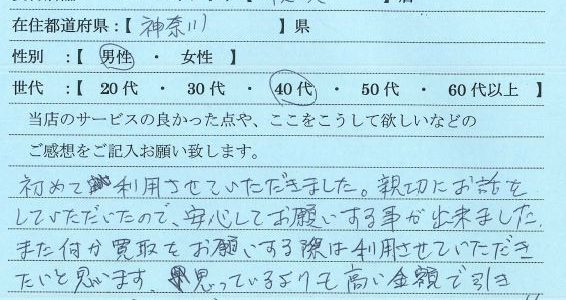 在住都道府県：【 神奈川 】県
性別 ：【 男性 ・ 女性 】
世代 ：【 20代 ・ 30代 ・ 40代 ・ 50代 ・ 60代以上 】
当店のサービスの良かった点や、ここをこうして欲しいなどの
ご感想をご記入お願い致します。
初めて利用させていただきました。親切にお話を
していただいたので、安心してお願いする事が出来ました。
また何か買取をお願いする際は利用させていただき
たいと思います。思っているよりも高い金額で引き